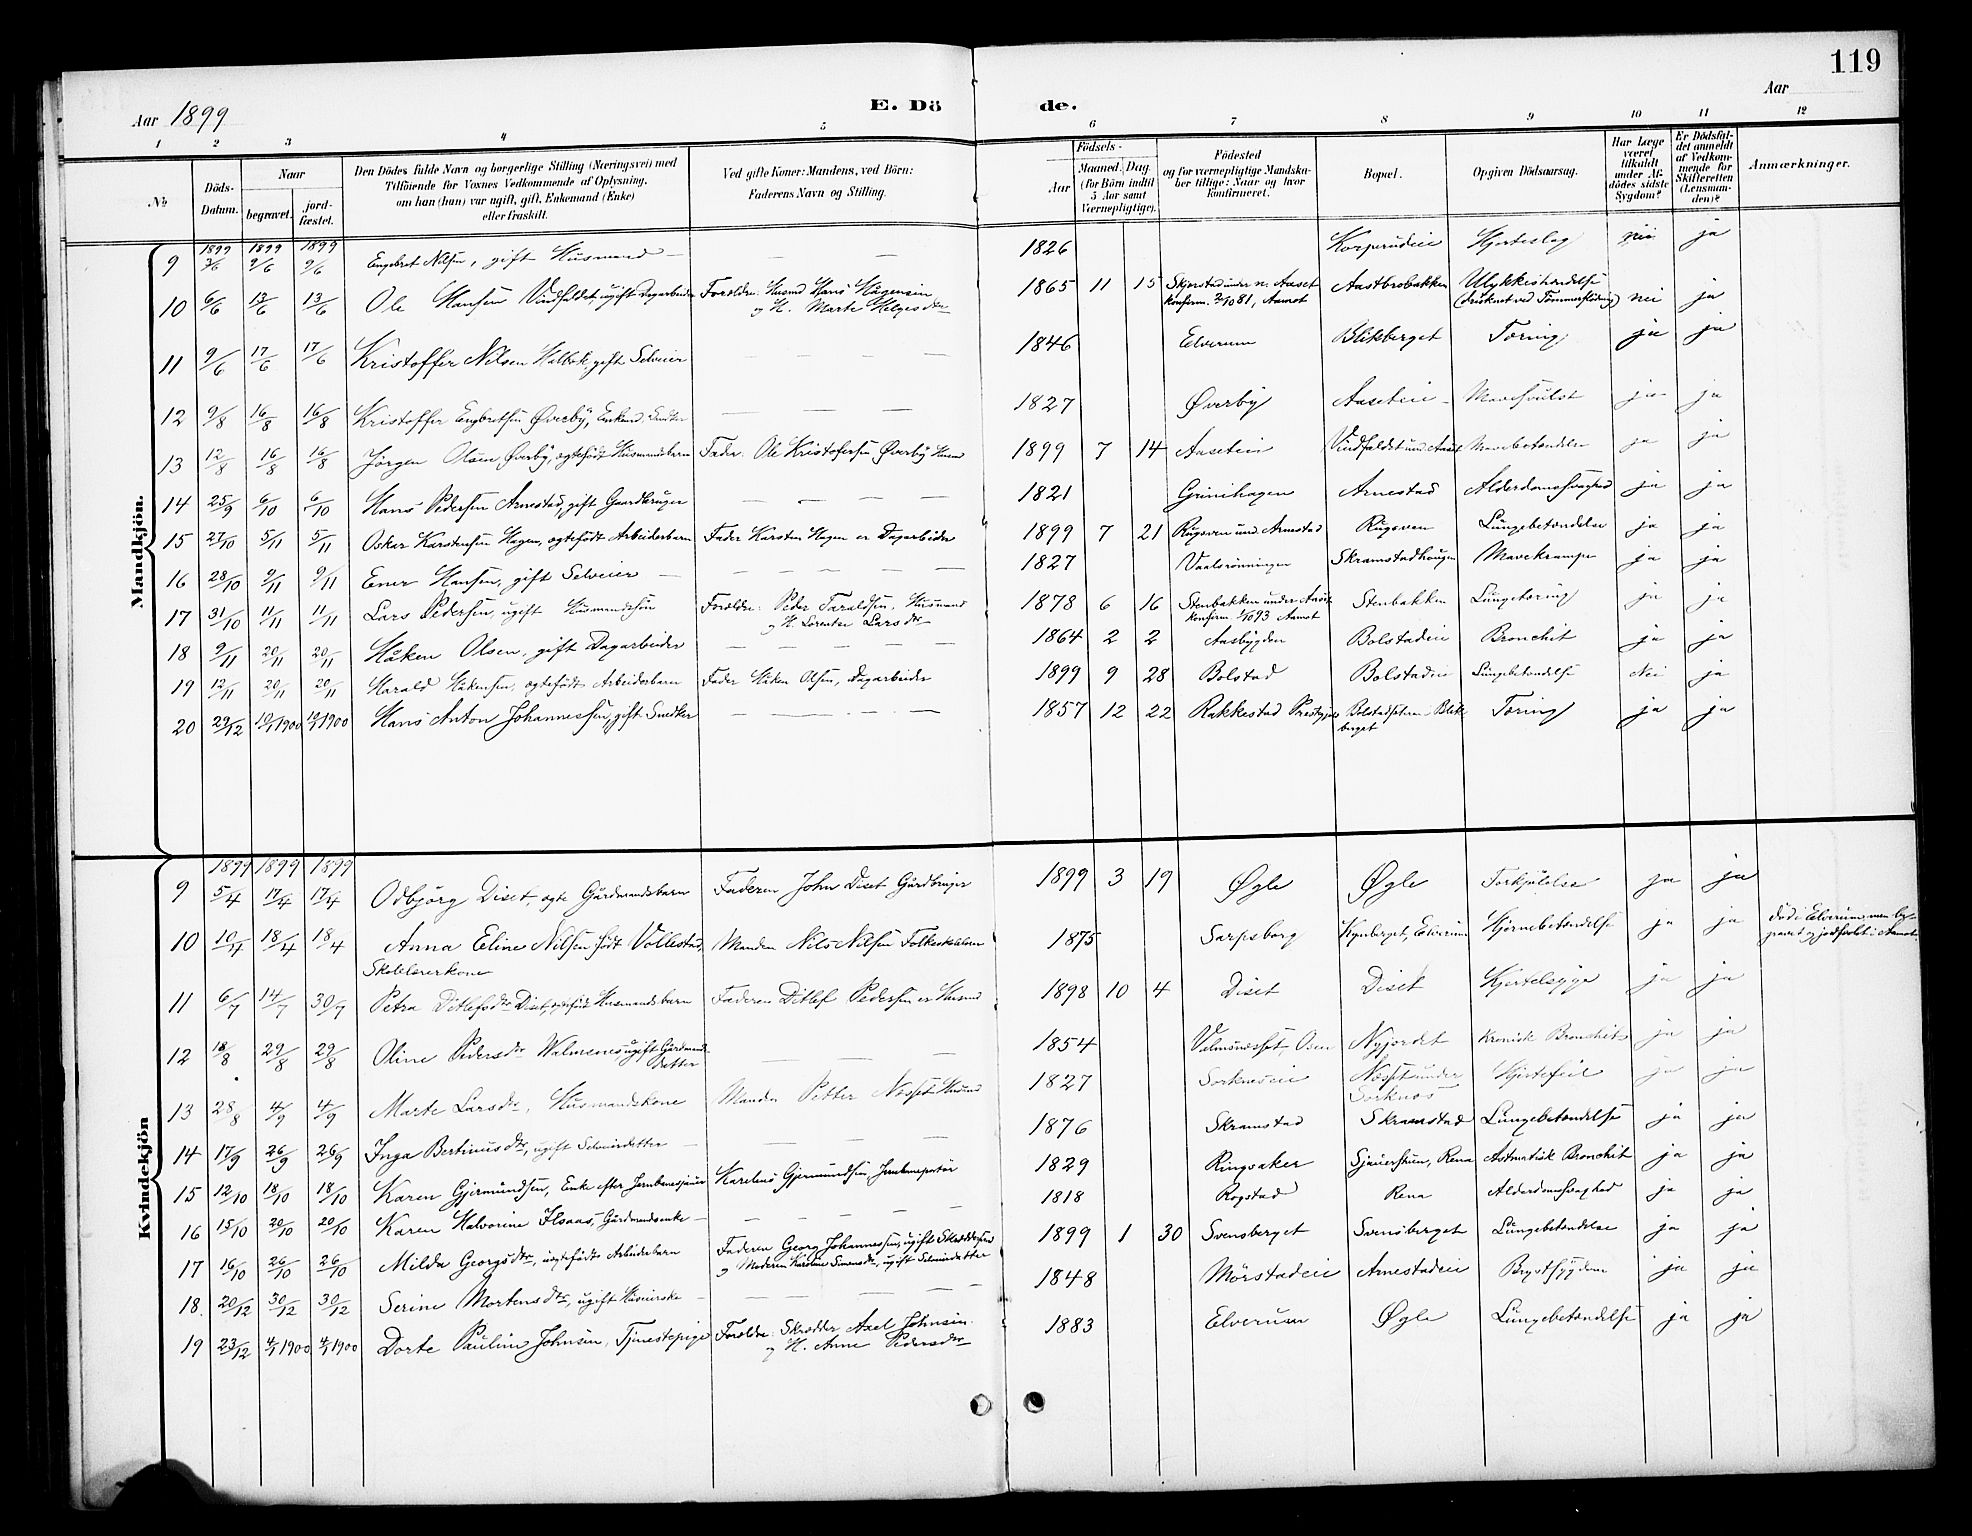 119
Aar 1899
E. Dö
de.
Aar
1 2 3 4 5 6 7 8 9 10 11 12
№
Döds-Datum.
Naar
begravet.
jord-fæstet.
Den Dödes fulde Navn og borgerlige Stilling (Næringsvei) med
Tilföiende for Voxnes Vedkommende af Oplysning,
om han (hun) var ugift, gift, Enkemand (Enke)
eller fraskilt.
Ved gifte Koner: Mandens, ved Börn:
Faderens Navn og Stilling.
Födsels-
Aar
Maaned. Dag.
(for Börn indtil
5 Aar samt
Værnepligtige).
Födested
og for værnepligtige Mandska-
ber tillige: Naar og hvor
konfirmeret.
Bopæl.
Opgiven Dödsaarsag.
Har Læge
været
tilkaldt
under Af-
dödes sidste
Sygdom?
Er Dödsfal-
det anmeldt
af Vedkom-
mende for
Skifteretten
(Lensman-
den)?
Anmærkninger.
Mandkjön.
1899 1899 1899
9 9/6 9/6 Engebret Nilsen, gift Husmand — — — 1826 Hjerteslag nei ja
10 6/6 13/6 13/6 Ole Hansen Vindfaldet, ugift Dagarbeider Forældre: Husmd Hans Hågensen 1865 11 15 Aastbrobakken Ulykkeshændelse
og H. Marte Helgesdtr konfirm. 81, Aamot (druknet ved Tømmerflödning) nei ja
11 9/6 17/6 17/6 Kristoffer Nilsen gift Selveier — — — 1846 Elverum Blikberget Tæring ja ja
12 9/8 16/8 16/8 Kristoffer Engbretsen Øverby, Enkemd — — — 1827 Øverby Aaseteie Mavesvulst ja ja
13 12/8 16/8 16/8 Jörgen Olsen Øverby, ægtefödt Husmandsbarn Fader: Ole Kristofersen Øverby Husmd 1899 7 14 Aaseteie Vindfaldet und. Aaset Mavebetændelse ja ja
14 25/9 6/10 6/10 Hans Pedersen Arnestad, gift Gaardbruger — — — 1821 Grinihagen Arnestad Alderdomssvaghed ja ja
15 27/10 5/11 5/11 Oskar Karstensen Hagen, ægtefödt Arbeiderbarn Fader Karsten Hagen er Dagarbeider 1899 7 21 Rugsveen und. Arnestad Rugsveen Lungebetændelse ja ja
16 28/10 9/11 9/11 Ener Hansen, gift Selveier — — — — 1827 Vaalsrönningen Skramstadhaugen Mavekrampe ja ja
17 31/10 11/11 11/11 Lars Pedersen, ugift Husmandssön Forældre: Peder Taraldsen, Husmand 1878 6 16 Stenbakken under Stenbakken Lungetæring ja ja
og H. Lorentse Larsdtr konfirm. 93 Aamot
18 9/11 20/11 20/11 Håken Olsen, gift Dagarbeider — — — — 1864 2 2 Aasbygden Bolstadeie Bronchit ja ja
19 12/11 20/11 20/11 Harald Håkensen, ægtefödt Arbeiderbarn Fader Håken Olsen, Dagarbeider 1899 9 28 Bolstad Bolstadeie Lungebetændelse Nei ja
20 29/12 10/1 1900 10/1 1900 Hans Anton Johannessen, gift Snedker — — — — 1857 12 22 Rakkestad Prestegjeld Bolstadsetern Blik- Tæring ja ja
berget
Kvindekjön
1899 1899 1899
9 5/4 17/4 17/4 Odbjörg Diset, ægte Gårdmandsbarn Faderen John Diset Gårdbruger 1899 3 19 Øgle Øgle Forkjölelse ja ja
10 10/4 18/4 18/4 Anna Eline Nilsen född Vollestad, Manden Nils Nilsen Folkeskolelærer 1875 Sarpsborg Kynberget, Elverum Hjernebetændelse ja ja död i Elverum, men be-
Skolelærerkone gravet og jordfæstet i Aamot.
11 6/7 14/7 30/7 Petra Ditlefsdtr Diset, ægtefödt Husmandsbarn Faderen Ditlef Pedersen er Husmd 1898 10 4 Diset Diset Kjertelsyge ja ja
12 18/8 29/8 29/8 Oline Pedersdtr Valmsnes ugift Gårdmands- — — — 1854 Valmsnæsset, Osen Nyjordet Kronisk Bronchit ja ja
datter
13 28/8 4/9 4/9 Marte Larsdtr, Husmandskone Manden Petter Næsset Husmd 1827 Sorkneseie Næsset under Hjertefeil ja ja
Sorknæs
14 17/9 26/9 26/9 Inga Bertinusdtr, ugift Selveierdatter — — — 1876 Skramstad Skramstad Lungebetændelse ja ja
15 12/10 18/10 18/10 Karen Gjermundsen, Enke efter Karelius Gjermundsen 1829 Ringsaker Rena Astmatisk Bronchit ja ja
16 15/10 20/10 20/10 Karen Halvorine Ilsaas, Gårdmandsenke — — — — 1818 Rogstad Rena Alderdomssvaghed ja ja
17 16/10 26/10 26/10 Milda Georgsdtr, uægtefödt Arbeiderbarn Faderen Georg Johannessen, ugift Skræddersvend 1899 1 30 Svensberget Svensberget Lungebetændelse ja ja
og Moderen Karoline Simensdtr, ugift Selveierdatter
18 20/12 30/12 30/12 Serine Mortensdtr, ugift Huseierske — — — — 1848 Mörstadeie Arnestadeie Brystsygdom ja ja
19 23/12 4/1 1900 4/1 1900 Dorte Pauline Johnsen, Tjenestepige Forældre: Skrædder Axel Johnsen 1883 Elverum Øgle Lungebetændelse ja ja
og H. Anne Pedersdtr